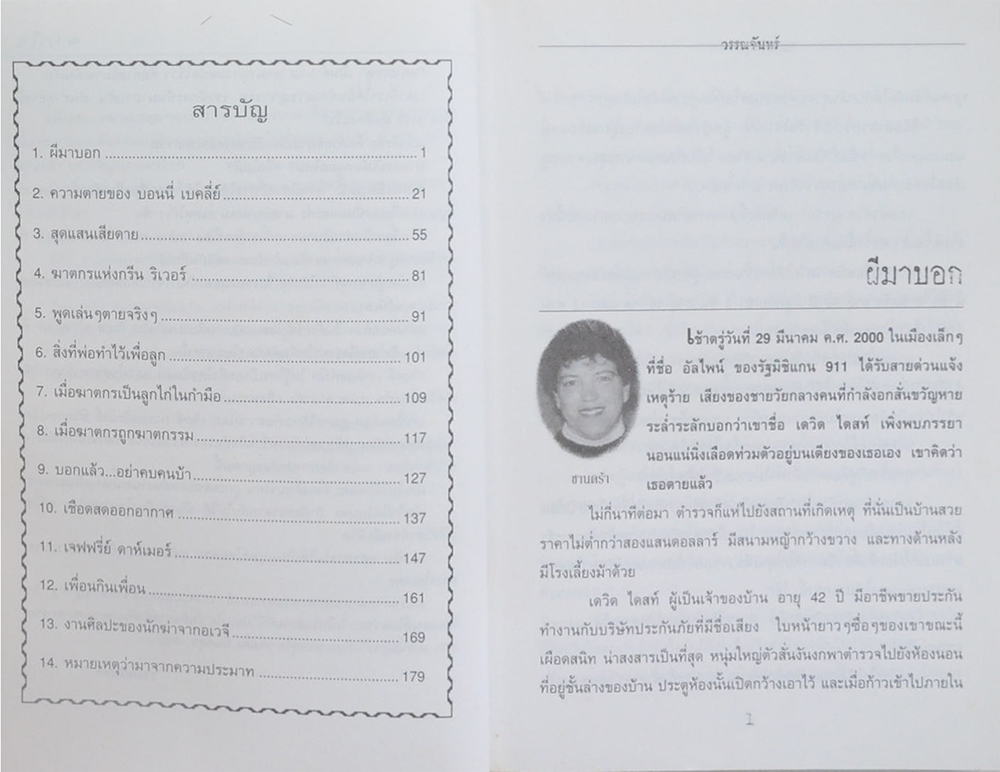 สารบัญ
1. ผีมาบอก ........ 1
2. ความตายของ บอนนี่ เบคลี่ย์ ........ 21
3. สุดแสนเสียดาย ........ 55
4. ฆาตกรแห่งกรีน ริเวอร์ ........ 81
5. พูดเล่นๆตายจริงๆ ........ 91
6. สิ่งที่พ่อทำไว้เพื่อลูก ........ 101
7. เมื่อฆาตกรเป็นลูกไก่ในกำมือ ........ 109
8. เมื่อฆาตกรถูกฆาตกรรม ........ 117
9. บอกแล้ว...อย่าคบคนบ้า ........ 127
10. เชือดสดออกอากาศ ........ 137
11. เจฟฟรี่ย์ ดาห์เมอร์ ........ 147
12. เพื่อนกินเพื่อน ........ 161
13. งานศิลปะของนักฆ่าจากอเวจี ........ 169
14. หมายเหตุว่ามาจากความประมาท ........ 179
วรรณจันทร์
ผีมาบอก
เช้าตรู่วันที่ 29 มีนาคม ค.ศ. 2000 ในเมืองเล็กๆ
ที่ชื่อ อัลไพน์ ของรัฐมิชิแกน 911 ได้รับสายด่วนแจ้ง
เหตุร้าย เสียงของชายวัยกลางคนที่กำลังอกสั่นขวัญหาย
ระล่ำระลักบอกว่าเขาชื่อ เดวิด ไดสท์ เพิ่งพบภรรยา
นอนแน่นิ่งเลือดท่วมตัวอยู่บนเตียงของเธอเอง เขาคิดว่า
เธอตายแล้ว
ซานดร้า
ไม่กี่นาทีต่อมา ตำรวจก็แห่ไปยังสถานที่เกิดเหตุ ที่นั่นเป็นบ้านสวย
ราคาไม่ต่ำกว่าสองแสนดอลลาร์ มีสนามหญ้ากว้างขวาง และทางด้านหลัง
มีโรงเลี้ยงม้าด้วย
เดวิด ไดสท์ ผู้เป็นเจ้าของบ้าน อายุ 42 ปี มีอาชีพขายประกัน
ทำงานกับบริษัทประกันภัยที่มีชื่อเสียง ใบหน้ายาวๆซื่อๆของเขาขณะนี้
เผือดสนิท น่าสงสารเป็นที่สุด หนุ่มใหญ่ตัวสั่นงันงกพาตำรวจไปยังห้องนอน
ที่อยู่ชั้นล่างของบ้าน ประตูห้องนั้นเปิดกว้างเอาไว้ และเมื่อก้าวเข้าไปภายใน
1